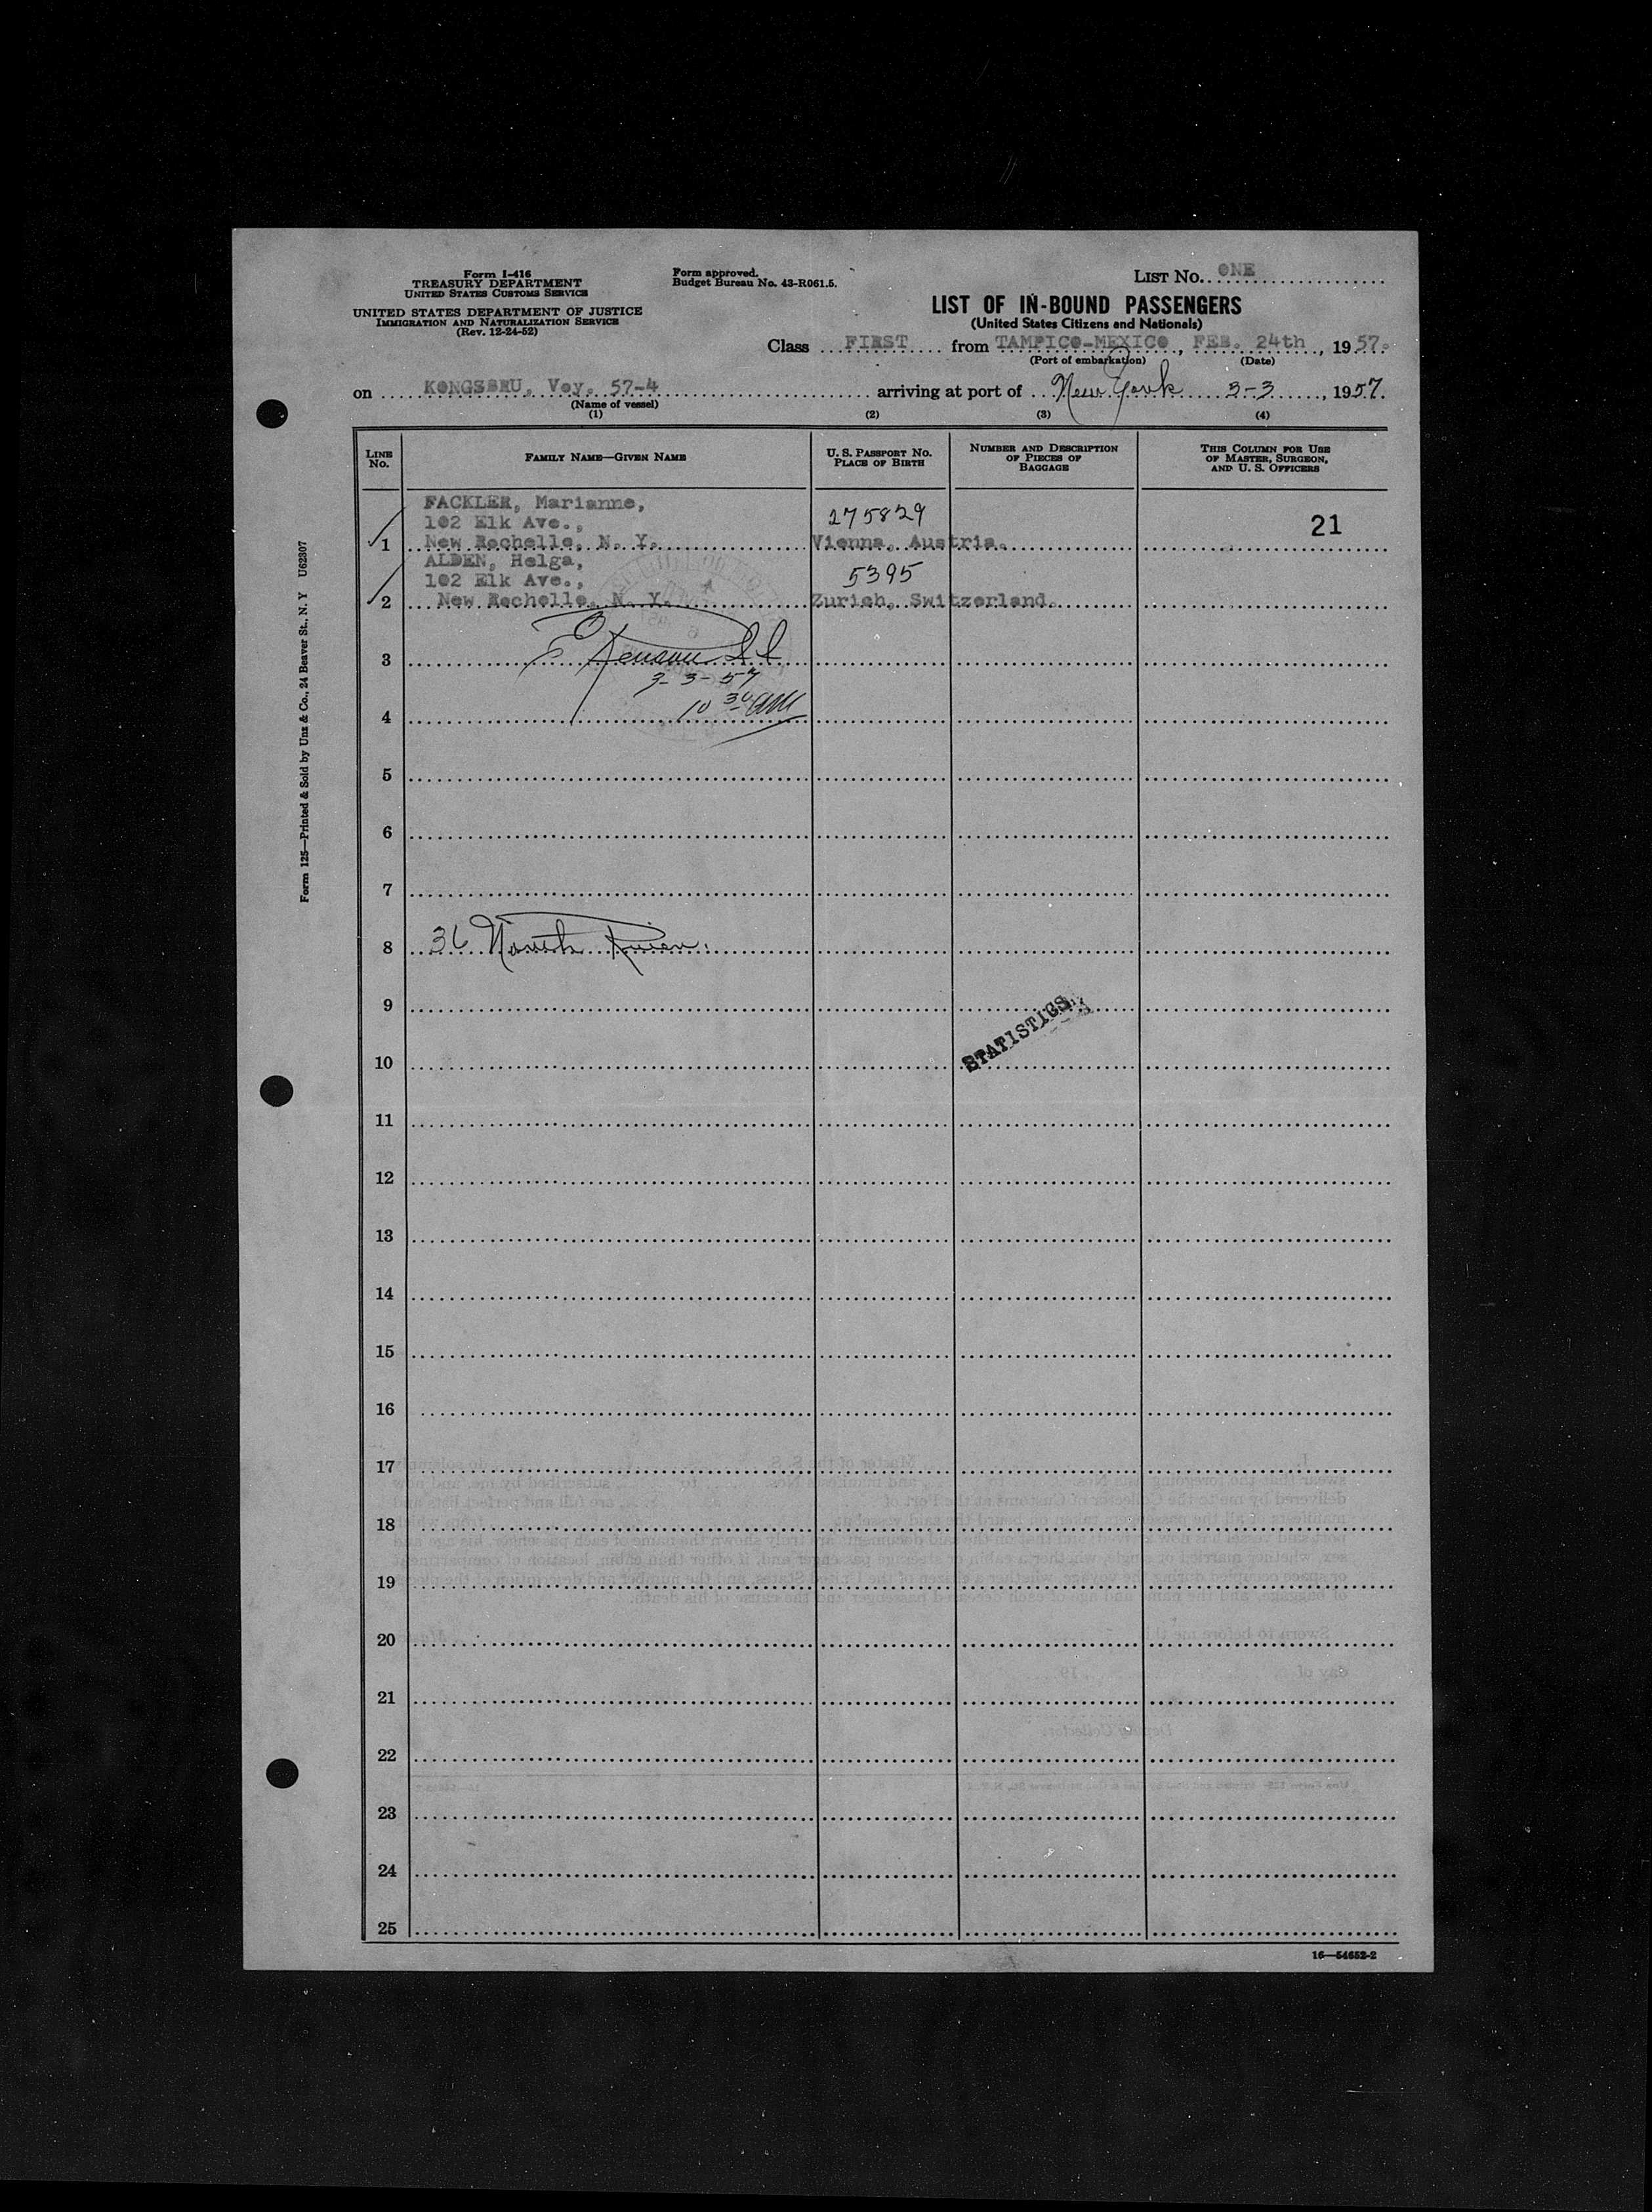 Form I-416
TREASURY DEPARTMENT
UNITED STATES CUSTOMS SERVICE
UNITED STATES DEPARTMENT OF JUSTICE
IMMIGRATION AND NATURALIZATION SERVICE
(Rev. 12-24-52)
Form approved.
Budget Bureau No. 43-R061.5.
LIST No. ONE
LIST OF IN-BOUND PASSENGERS
(United States Citizens and Nationals)
Class FIRST from TAMPICO-MEXICO, FEB. 24th, 1957.
(Port of embarkation) (Date)
on KONGSBRU, Voy. 57-4 arriving at port of New York 3-3, 1957.
(Name of vessel)
(1) (2) (3) (4)
LINE No. FAMILY NAME—GIVEN NAME U. S. PASSPORT No. PLACE OF BIRTH NUMBER AND DESCRIPTION OF PIECES OF BAGGAGE THIS COLUMN FOR USE OF MASTER, SURGEON, AND U. S. OFFICERS
FACKLER, Marianne,
102 Elk Ave., 275829 21
1 New Rochelle, N. Y. Vienna, Austria.
ALDEN, Helga,
102 Elk Ave., 5395
2 New Rochelle, N. Y. Zurich, Switzerland.
3
3-3-57
10 30 AM
4
5
6
7
8 36 North River.
9
STATISTICS
10
11
12
13
14
15
16
17
18
19
20
21
22
23
24
25
16—54652-2
Form 125—Printed & Sold by Unz & Co., 24 Beaver St., N. Y U62307